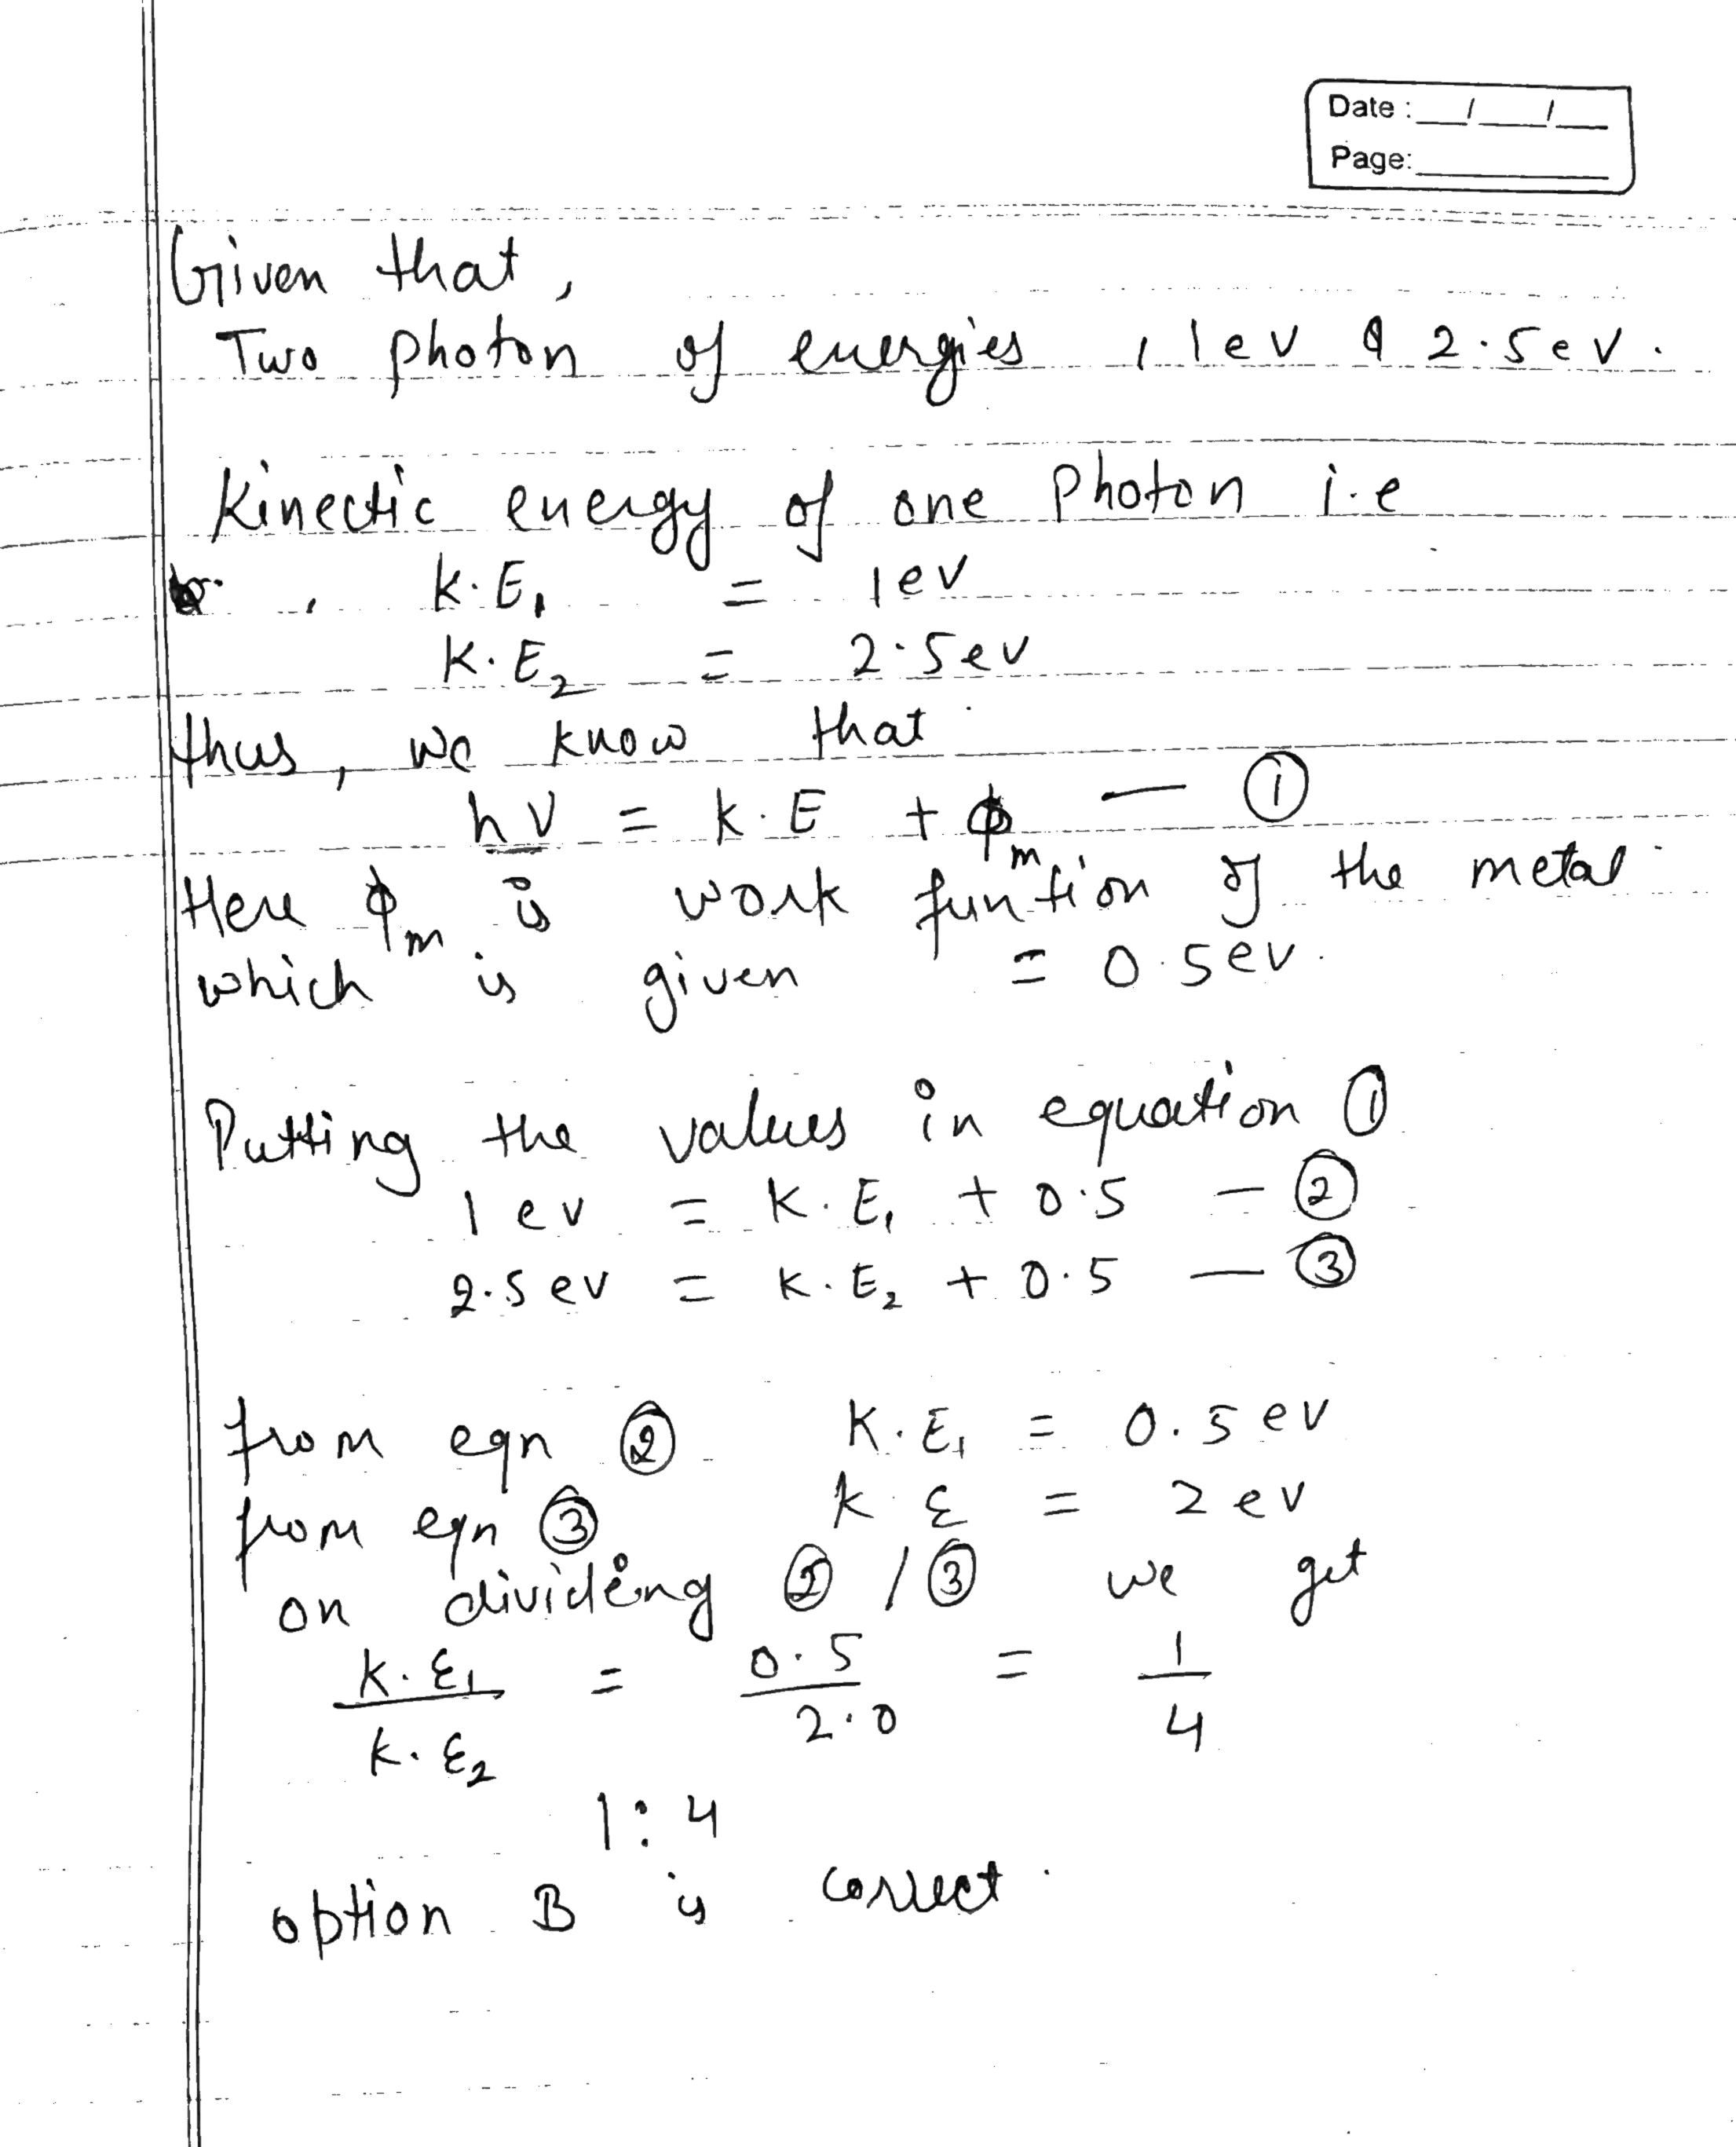 Date : __/__/__
Page: ________
Given that,
Two photon of energies, 1ev & 2.5ev.
Kinectic energy of one photon i.e
, K.E1 = 1ev
K.E2 = 2.5ev
thus, we know that
hν = K.E + ϕm — ①
Here ϕm is work funtion of the metal
which is given = 0.5ev.
Putting the values in equation ①
1ev = K.E1 + 0.5 — ②
2.5ev = K.E2 + 0.5 — ③
from eqn ② K.E1 = 0.5ev
from eqn ③ K.E = 2ev
on dividing ② / ③ we get
K.E1 / K.E2 = 0.5 / 2.0 = 1 / 4
1:4
option B is correct.